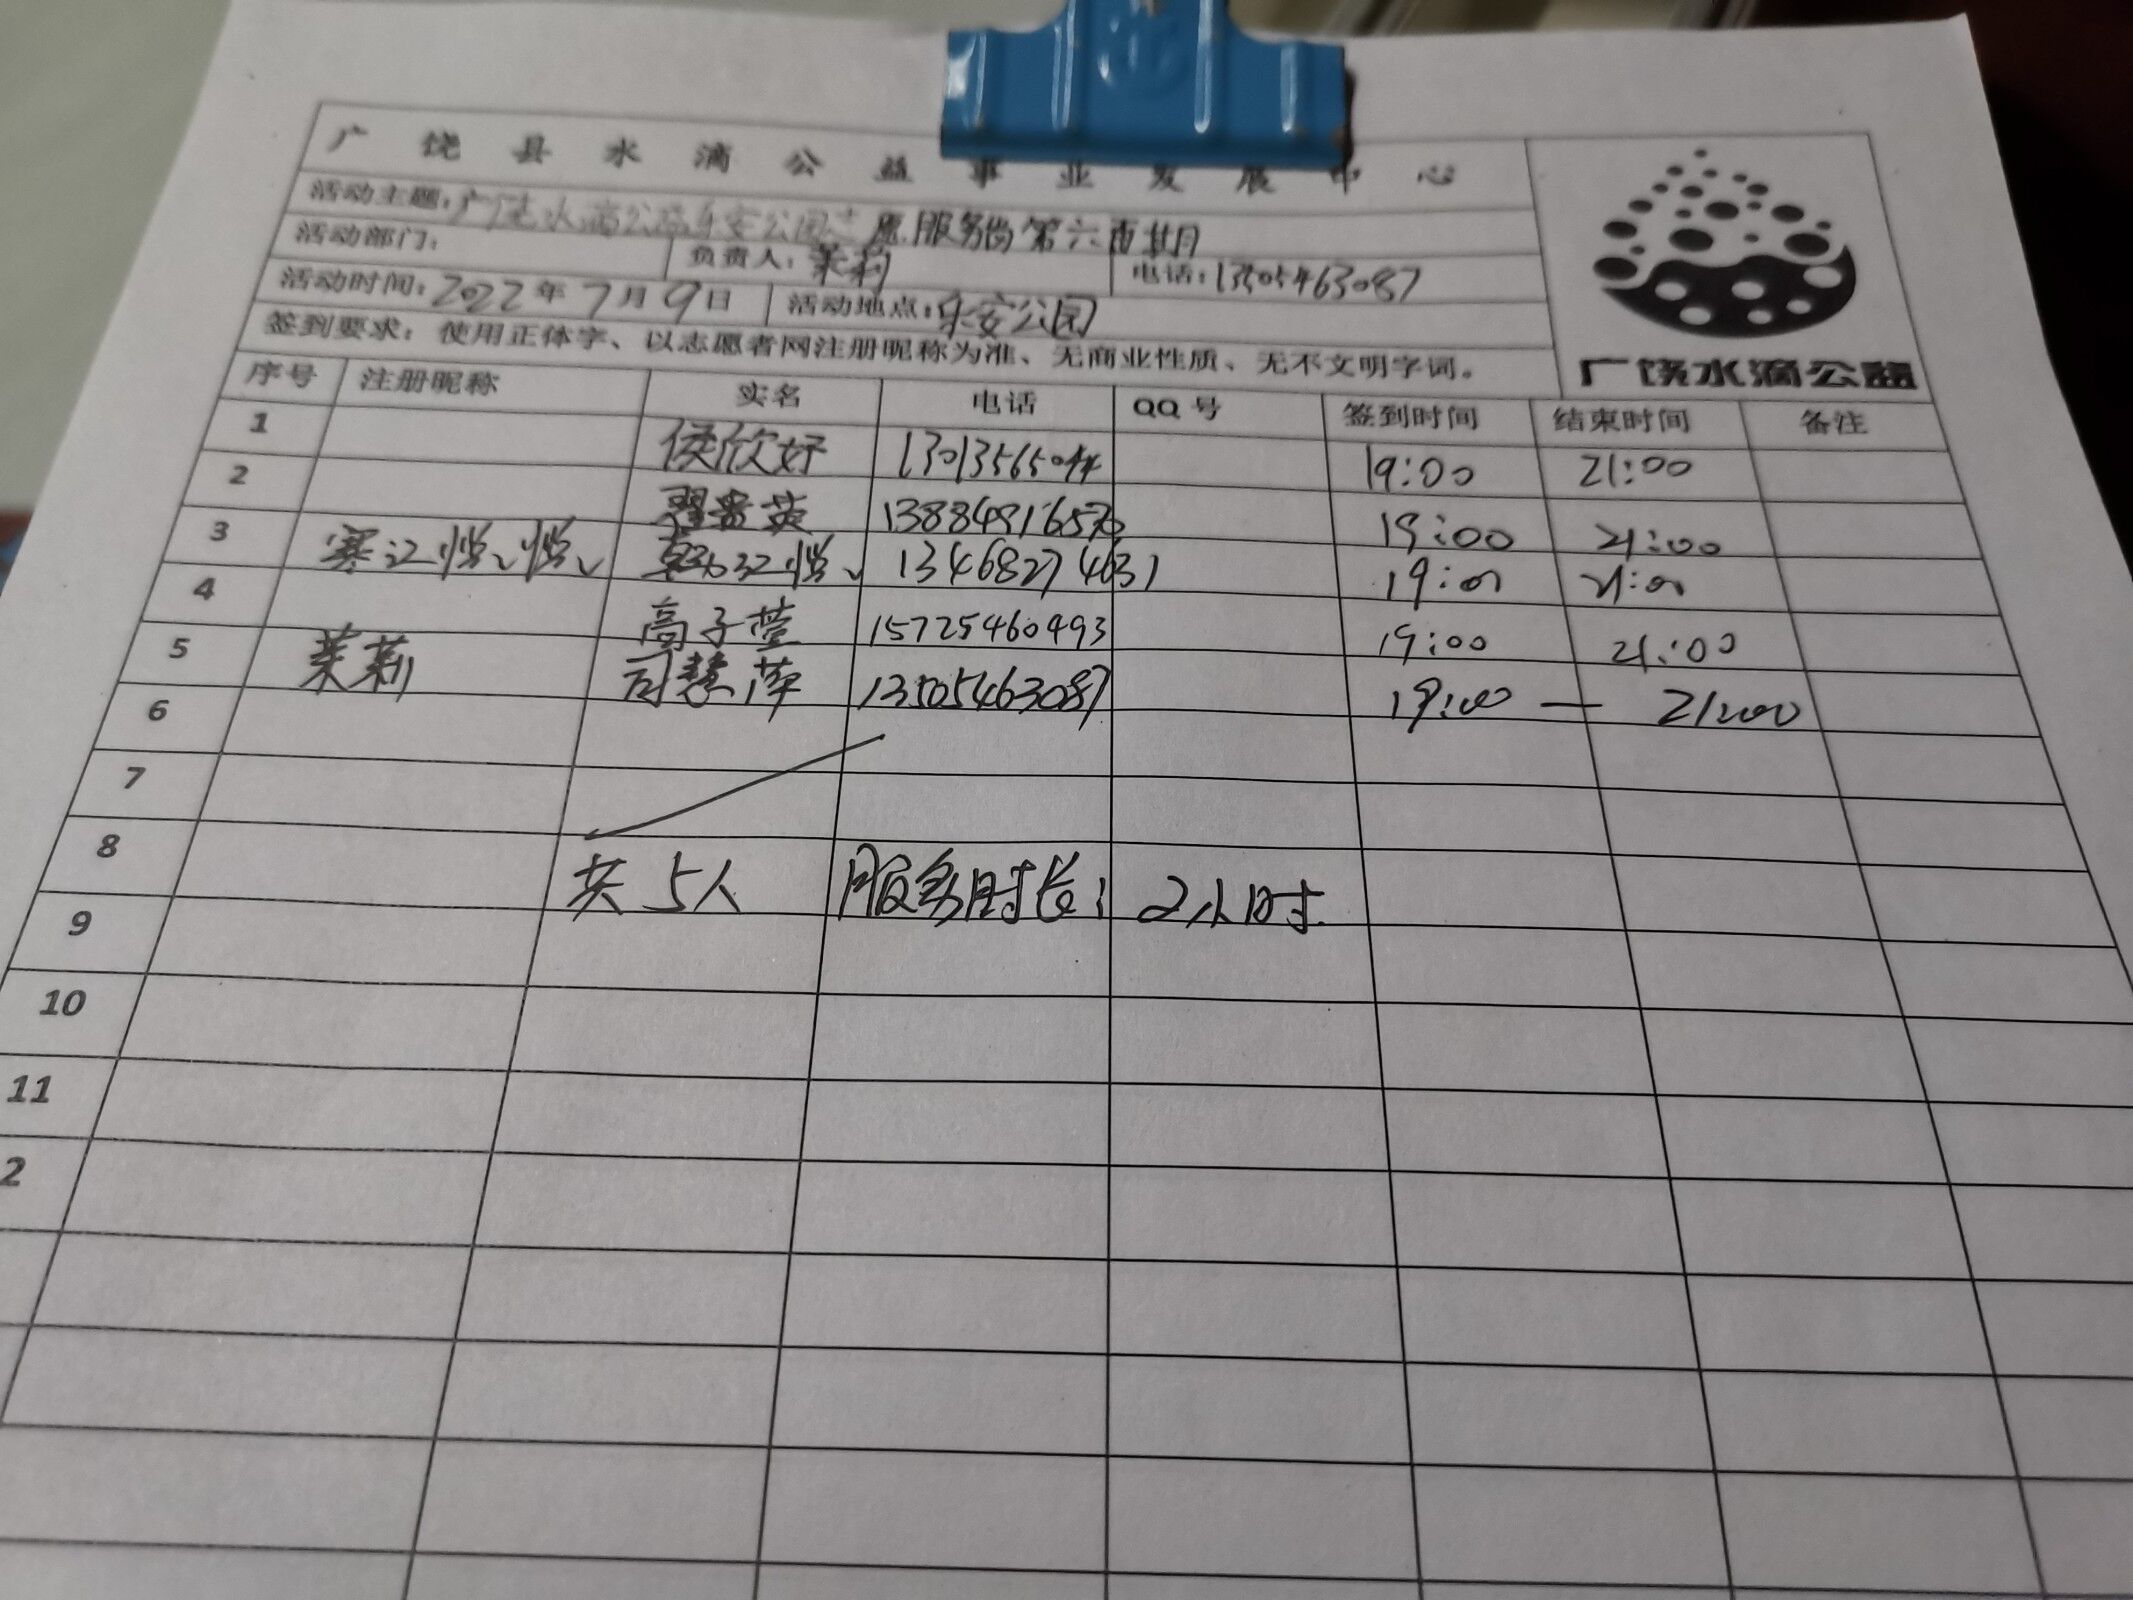 广饶县水滴公益事业发展中心
活动主题：广饶水滴公益乐安公园志愿服务岗第六百期
活动部门： 负责人：茉莉 电话：13505463087
活动时间：2022年7月9日 活动地点：乐安公园
签到要求：使用正体字、以志愿者网注册昵称为准、无商业性质、无不文明字词。
广饶水滴公益
序号 注册昵称 实名 电话 QQ号 签到时间 结束时间 备注
1 侯欣妤 19:00 21:00
2 19:00 21:00
3 13468274631 19:00 21:00
4 高子萱 15725460493 19:00 21:00
5 茉莉 司慧萍 13505463087 19:00 — 21:00
6
7
8 共5人 服务时长： 2小时.
9
10
11
2